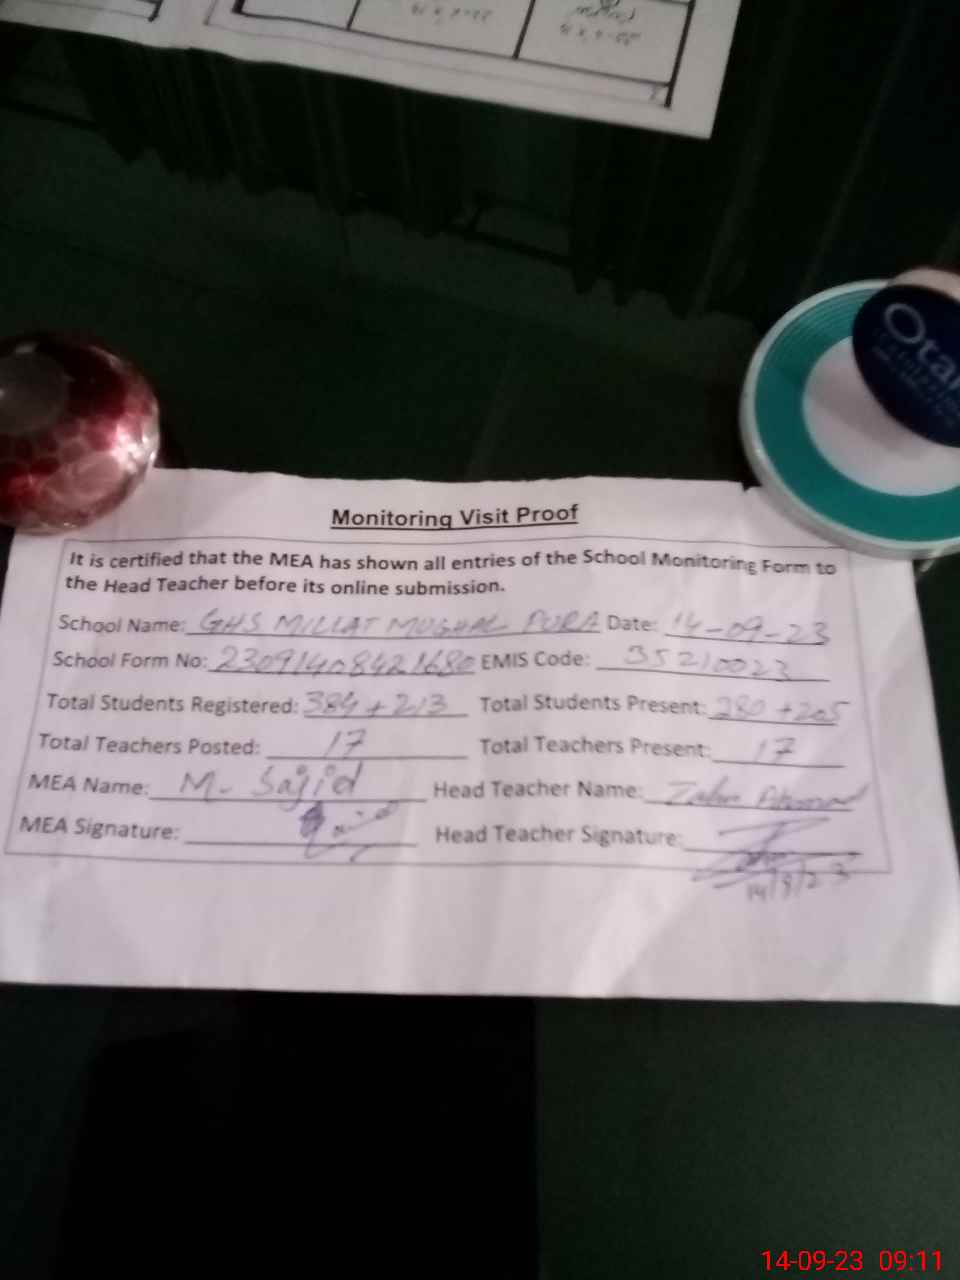 Otai
Monitoring Visit Proof
It is certified that the MEA has shown all entries of the School Monitoring Form to
the Head Teacher before its online submission.
School Name: GHS MILLAT MUGHAL PURA Date: 14-09-23
School Form No: 23091408421680 EMIS Code: 35210023
Total Students Registered: 384+213 Total Students Present: 280+205
Total Teachers Posted: 17 Total Teachers Present: 17
MEA Name: M. Sajid Head Teacher Name:
MEA Signature: Head Teacher Signature:
14/8/23
14-09-23 09:11